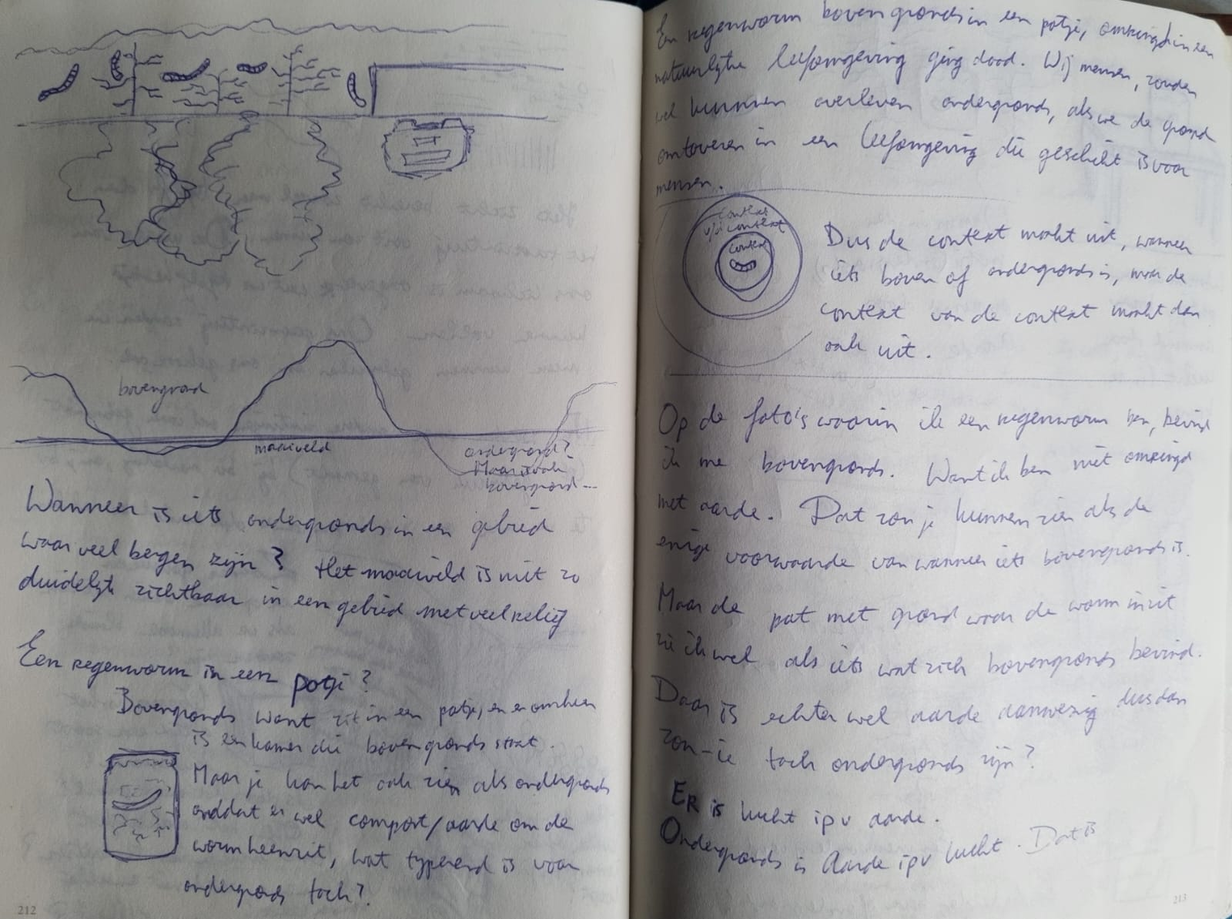 bovengrond
maaiveld
ondergrond?
Maar toch
bovengrond...
Wanneer is iets ondergronds in een gebied
waar veel bergen zijn? Het maaiveld is niet zo
duidelijk zichtbaar in een gebied met veel reliëf
Een regenworm in een potje?
Bovengronds want zit in een potje, en er omheen
is een kamer die bovengronds staat.
Maar je kan het ook zien als ondergronds
omdat er wel compost/aarde om de
worm heen zit, wat typerend is voor
ondergronds toch?
212
En regenworm bovengronds in een potje, omringd in een
natuurlijke leefomgeving ging dood. Wij mensen, zouden
wel kunnen overleven ondergronds, als we de grond
omtoveren in een leefomgeving die geschikt is voor
mensen.
context
v/d context
context
Dus de context maakt uit, wanneer
iets boven of ondergronds is, maar de
context van de context maakt dan
ook uit.
Op de foto's waarin ik een regenworm ben, bevind
ik me bovengronds. Want ik ben niet omringd
met aarde. Dat zou je kunnen zien als de
enige voorwaarde van wanneer iets bovengronds is.
Maar de pot met grond waar de worm in zit
zie ik wel als iets wat zich bovengronds bevind.
Daar is echter wel aarde aanwezig dus dan
zou-ie toch ondergronds zijn?
Er is lucht ipv aarde.
Ondergronds is Aarde ipv lucht. Dat is
213